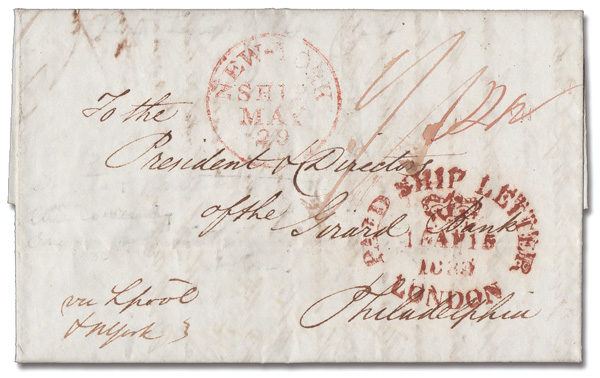 NEW-YORK
SHIP
MAY
29
To the
President & Directors
of the Girard Bank
Philadelphia
PAID SHIP LETTER
LONDON
via Lpool
& NYork